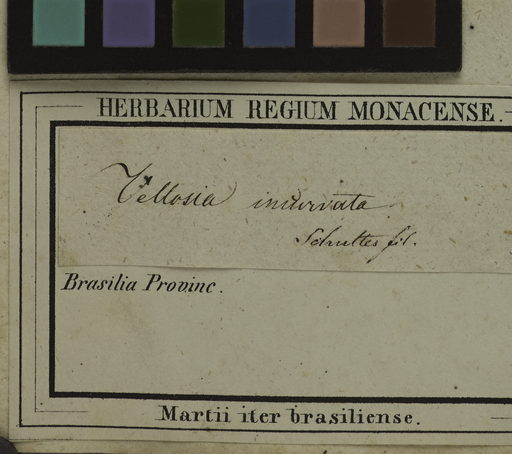 HERBARIUM REGIUM MONACENSE.
Vellosia incurvata
Schultes fil.
Brasilia Provinc.
Martii iter brasiliense.